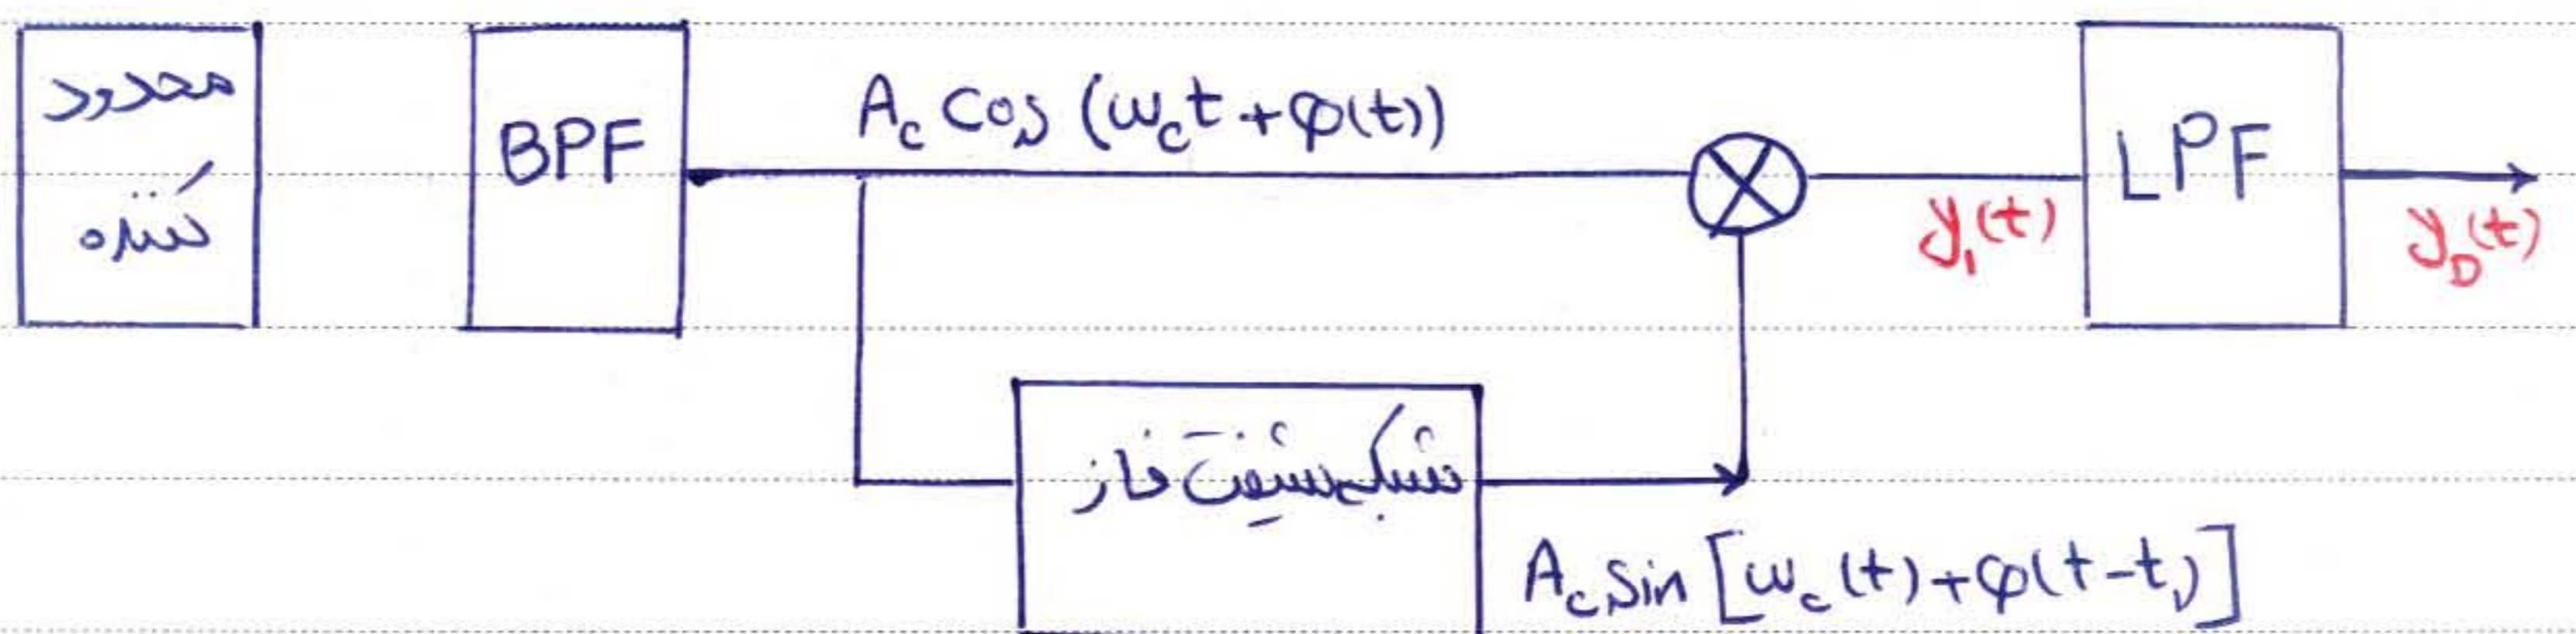 محدود
کننده
BPF
A_c Cos (ω_c t + φ(t))
y_1(t)
LPF
y_D(t)
شبکه شیفت فاز
A_c Sin [ω_c (t) + φ(t - t_1)]